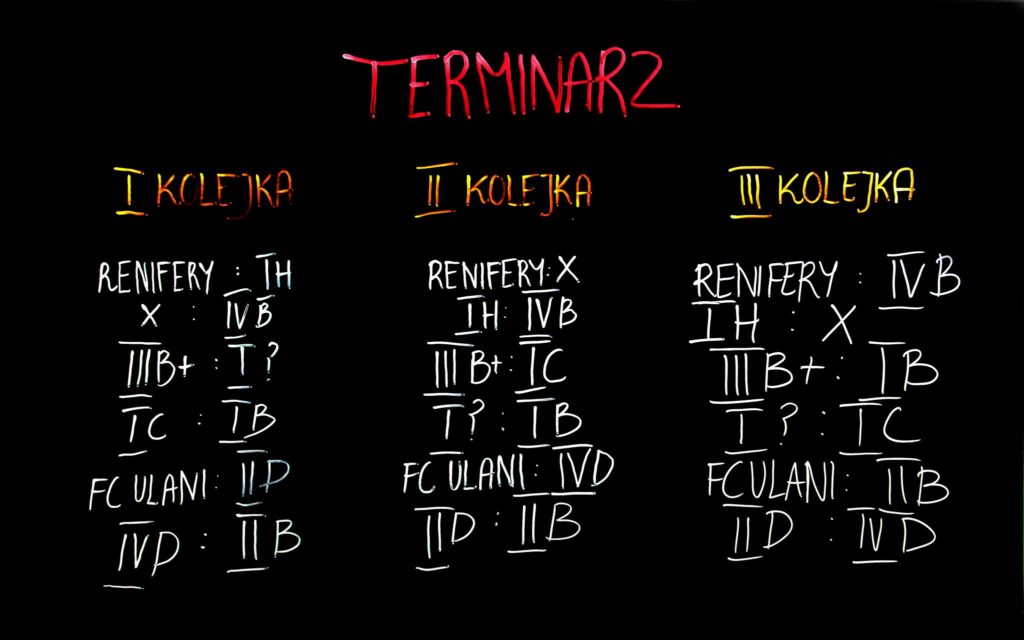 TERMINARZ
I KOLEJKA
RENIFERY : IH
X : IVB
IIIB+ : I?
IC : IB
FC ULANI : IID
IVD : IIB
II KOLEJKA
RENIFERY : X
IH : IVB
IIIB+ : IC
I? : IB
FC ULANI : IVD
IID : IIB
III KOLEJKA
RENIFERY : IVB
IH : X
IIIB+ : IB
I? : IC
FC ULANI : IIB
IID : IVD